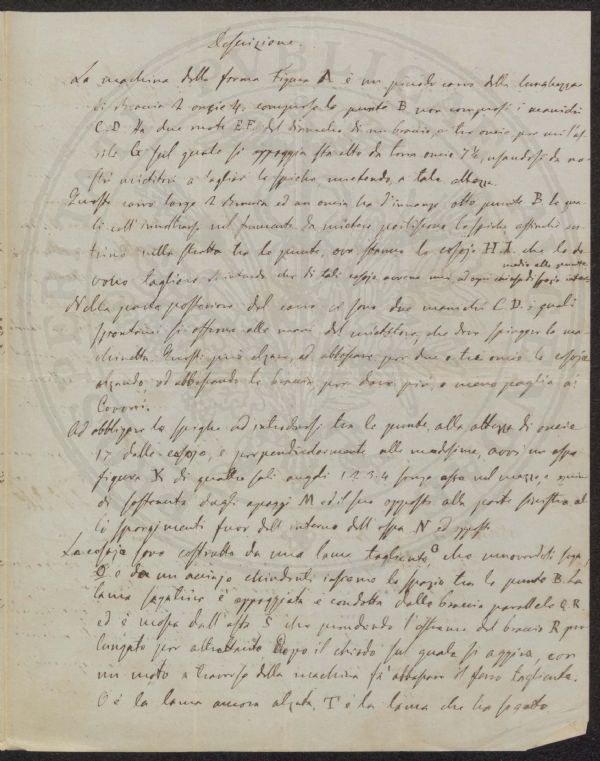 Descrizione.
La machina della forma Figura A è un piccolo carro della lunghezza
di braccia 2 oncie 4, comprese le punte B non compresi i manichi
C.D. Ha due ruote E.F. del diametro di un braccio, e tre oncie per cui l'as
sale sul quale si appoggia sta alto da terra oncie 7½, usandosi da no
stri mietitori a tagliar le spiche, mietendo, a tale altezza.
Questo carro largo 2 braccia ed un oncia ha d'innanzi otto punte B le qua
li coll'inoltrarsi nel frumento da mietere le spiche affinchè en
trino nella stretta tra le punte, ove stanno le cesoje H I. che le de
vono tagliare. che di tali cesoje avvene una ad ogni di spazio
medio alle punte
Nella parte posteriore del carro vi sono due manichi C.D. i quali
si offrono alle mani del mietitore, che deve spingere la ma
chinetta. Questi può alzare, ed abbassare per due o tre oncie le cesoje
alzando, ed abbassando le braccia, per dare più, o meno paglia ai
Covoni.
Ad obbligare le spighe ad introdursi tra le punte, alla altezza di oncie
17 dalle cesoje, e perpendicolarmente alle medesime, avvi un aspo
figura K di quattro soli angoli 1 2 3 4 senza asse nel mezzo, e
di sostenuta dagli apoggi M ed il suo opposto alla parte sinistra al
li sporgimenti fuor dell interno dell'aspo N ed opposto.
Le cesoje sono costrutte da una lama tagliente O che
e da un acciajo chiudenti insieme lo spazio tra le punte B. La
lama segatrice è appoggiata e condotta dalle braccia parallele Q.R.
ed è mossa dall'asta S che prendendo l'estremo del braccio R pro
lungato per altrettanto dopo il chiodo sul quale si aggira, con
un moto a traverso della machina fa abbassare il ferro tagliente.
O è la lama ancora alzata. T è la lama che ha segato.